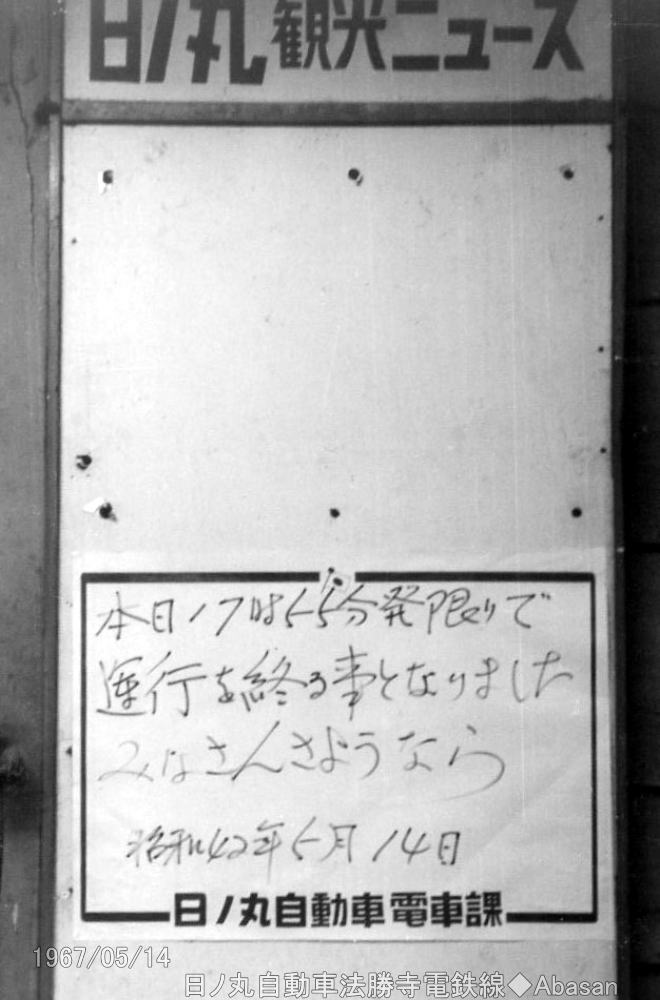 日ノ丸観光ニュース
本日17時55分発限りで
運行を終る事となりました
みなさんさようなら
昭和42年5月14日
日ノ丸自動車電車課
1967/05/14
日ノ丸自動車法勝寺電鉄線◆Abasan